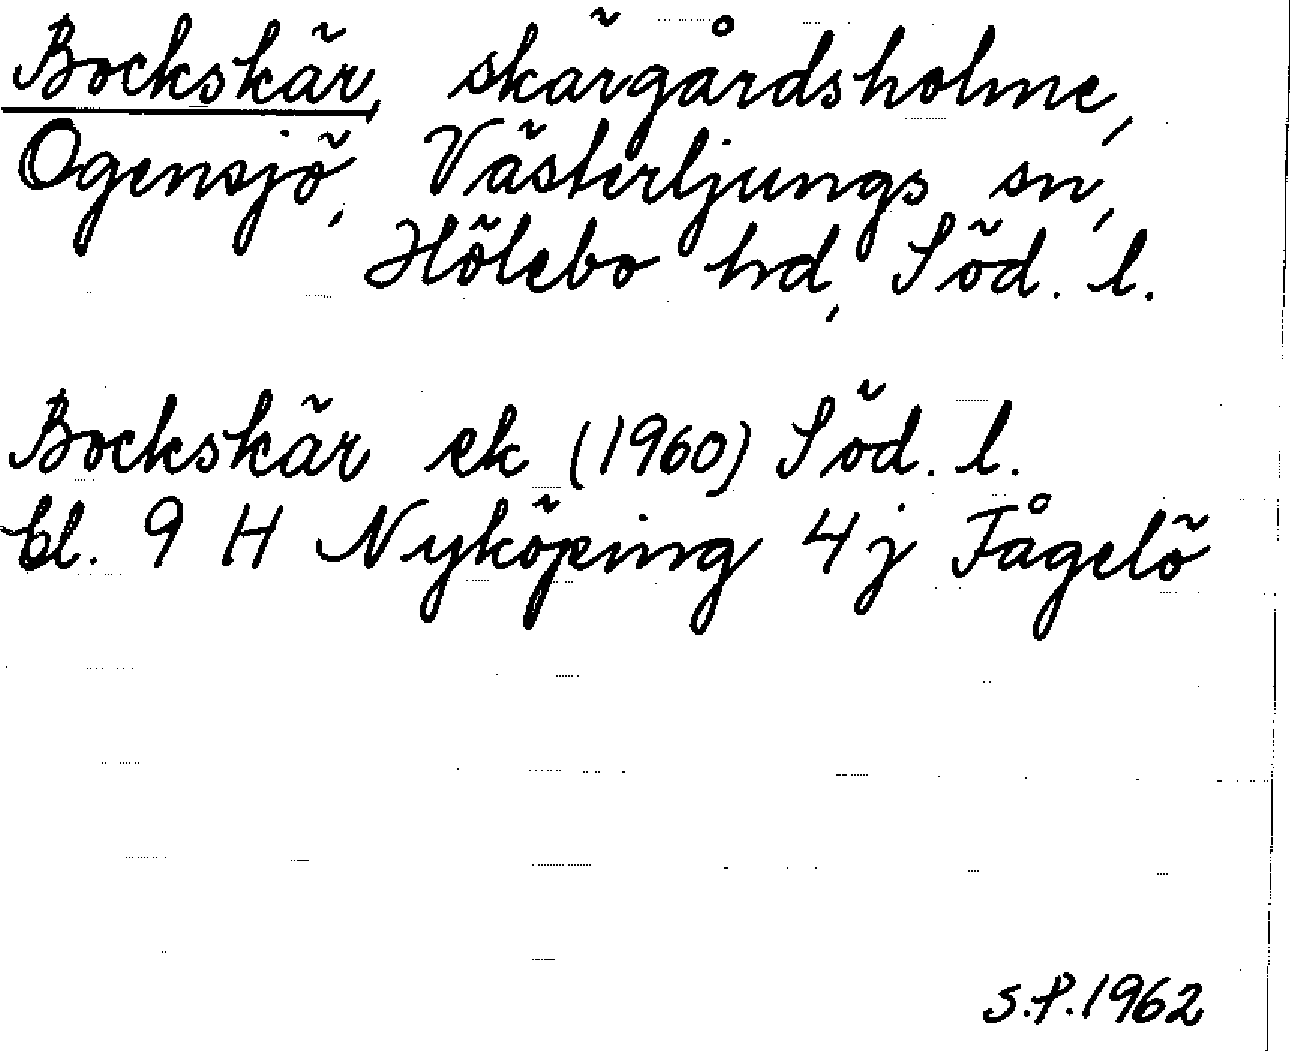 Bockskär, skärgårdsholme,
Ogensjö, Västerljungs sn,
Hölebo hd, Söd. l.
Bockskär ek (1960) Söd. l.
bl. 9 H Nyköping 4 j Fågelö
S.P. 1962